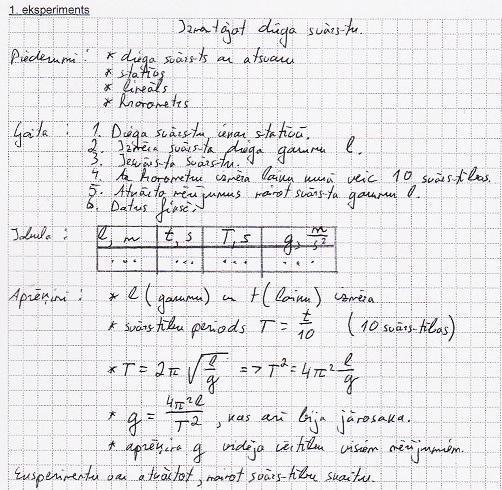 1. eksperiments
Izmantojot diega svārstu.
Piederumi: * diega svārsts ar atsvaru
* statīvs
* lineāls
* hronometrs
Gaita: 1. Diega svārstu ienes statīvā.
2. Izmēra svārsta diega garumu l.
3. Iesvārsta svārstu.
4. Ar hronometru uzmēra laiku kurā veic 10 svārstības.
5. Atkārto mērījumus mainot svārsta garumu l.
6. Datus fiksē.
Tabula: l, m t, s T, s g, m/s²
... ... ... ...
Aprēķini: * l (garumu) un t (laiku) uzmēra
* svārstību periods T = t/10 (10 svārstības)
* T = 2π √(l/g) => T² = 4π² l/g
* g = 4π²l/T², kas arī bija jānosaka.
* aprēķina g vidējo vērtību visiem mērījumiem.
Eksperimentu var atkārtot, mainot svārstību skaitu.